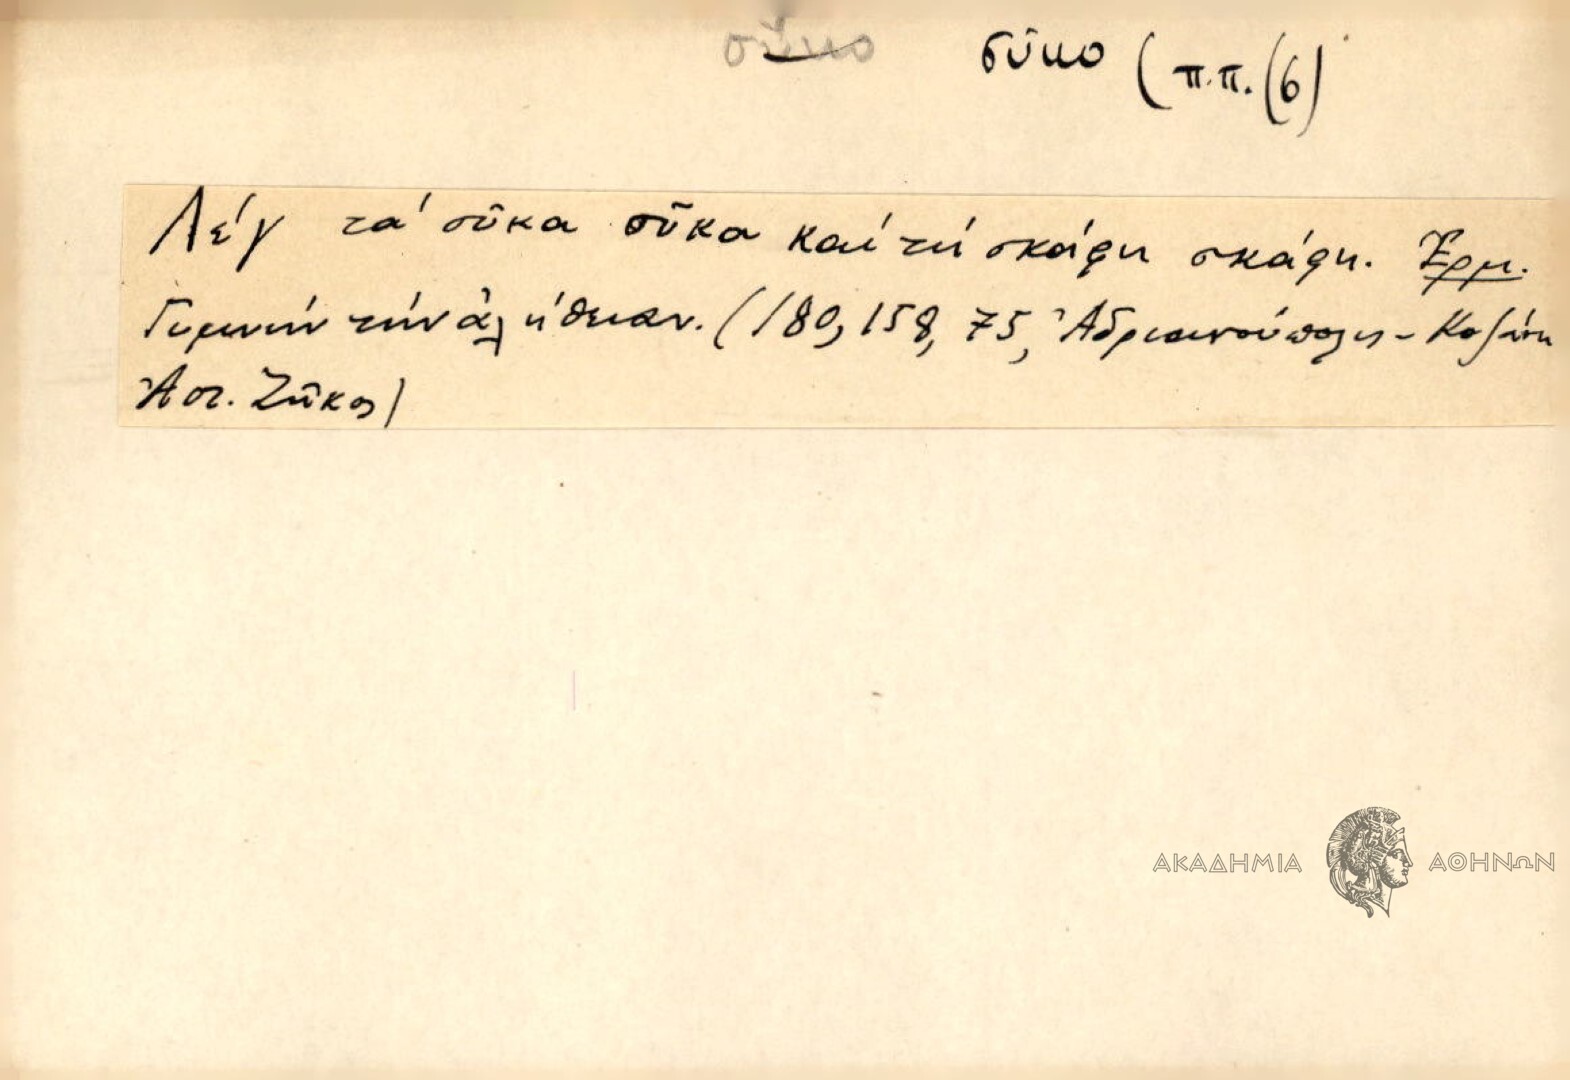 σῦκο σῦκο (π.π. (6)
Λέγ τά σῦκα σῦκα καί τή σκάφη σκάφη. Ἑρμ.
Γυμνήν τήν ἀλήθειαν. (180, 158, 75, Ἀδριανούπολις - Κοζάνη
Ἀστ. Ζῆκος)
ΑΚΑΔΗΜΙΑ ΑΘΗΝΩΝ